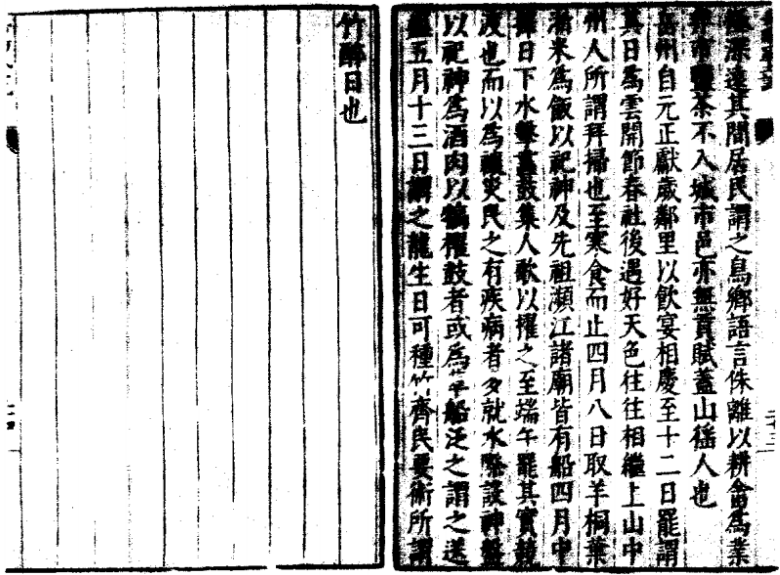 極深遠其間居民謂之鳥鄉語言侏離以耕畬為業
非市鹽茶不入城市邑亦無貢賦蓋山徭人也
岳州自元正獻歲鄰里以飲宴相慶至十二日罷謂
其日為雲開節春社後遇好天色往往相繼上山中
州人所謂拜掃也至寒食而止四月八日取羊桐葉
淅米為飯以祀神及先祖瀕江諸廟皆有船四月中
擇日下水擊畫鼓集人歌以櫂之至端午罷其實競
渡也而以為禳災民之有疾病者多就水際設神盤
以祀神為酒肉以犒櫂鼓者或為草船泛之謂之送
瘟五月十三日謂之龍生日可種竹齊民要術所謂
竹醉日也